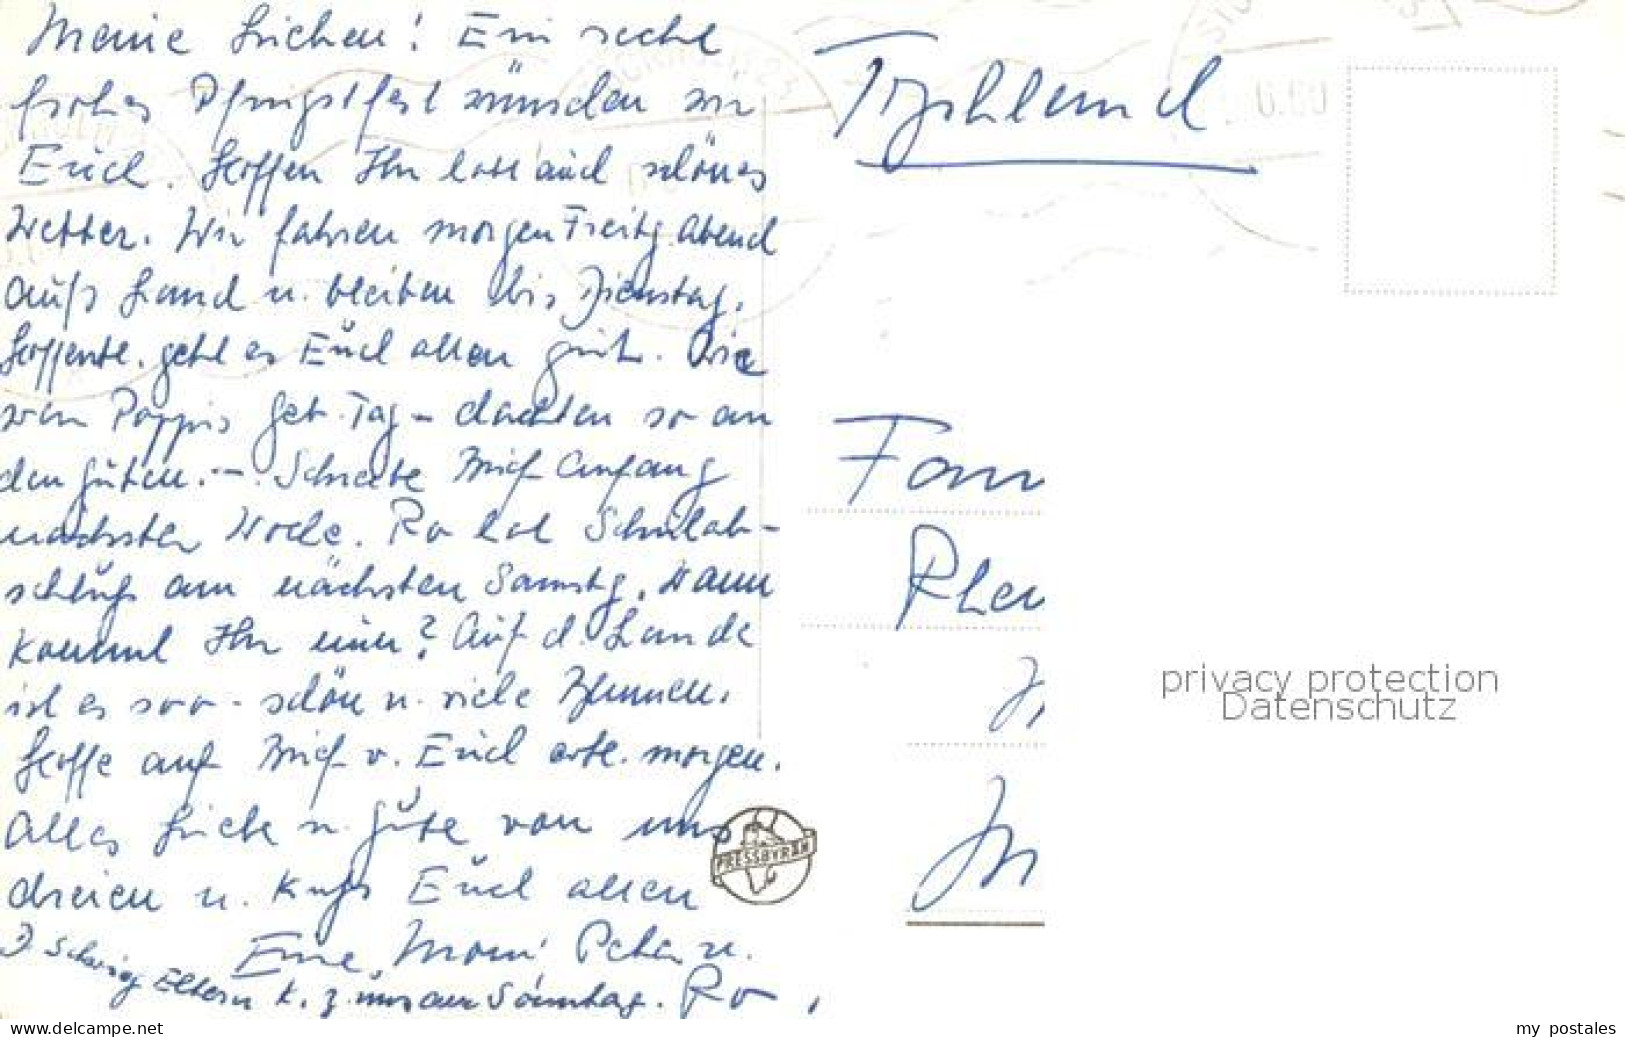 Meine Lieben! Ein recht
frohes Pfingstfest wünschen wir
Euch. Hoffen Ihr habt auch schönes
Wetter. Wir fahren morgen Freitg. Abend
aufs Land u. bleiben bis Dienstag.
Hoffentl. geht es Euch allen gut. Wie
war Pappis Geb. Tag - dachten so an
den Guten. - Schreibe Brief Anfang
nächster Woche. Ro hat Schulab-
schluß am nächsten Samstg. Wann
kommt Ihr nun? Auf d. Lande
ist es soo - schön u. viele Blumen.
Hoffe auf Brief v. Euch evtl. morgen.
Alles Liebe u. Gute von uns
dreien u. Kuß Euch allen
Eure Mom Peter u.
Ro
D. Schwieg Eltern k. z. uns am Sonntag.
Tyskland
Fam
Rhei
PRESSBYRÅN
privacy protection
Datenschutz
www.delcampe.net
my postales